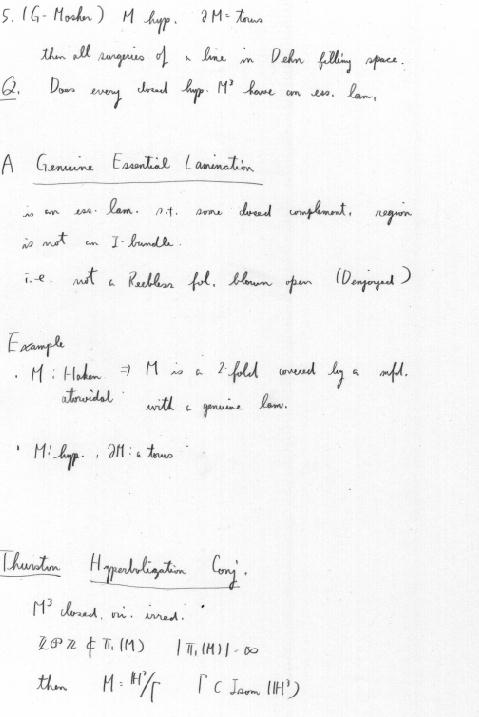 5. (G-Mosher) M hyp. ∂M = torus
then all surgeries of a line in Dehn filling space.
Q. Does every closed hyp. M³ have an ess. lam.
A Genuine Essential Lamination
is an ess. lam. s.t. some closed complement. region
is not an I-bundle.
i.e. not a Reebless fol. blown open (Denjoyed)
Example
· M: Haken ⇒ M is a 2-fold covered by a mfd.
atoroidal with a genuine lam.
· M: hyp., ∂M: a torus
Thurston Hyperbolization Conj.
M³ closed, ori. irred.
ℤ⊕ℤ ⊄ π₁(M) |π₁(M)| = ∞
then M = ℍ³/Γ Γ ⊂ Isom(ℍ³)